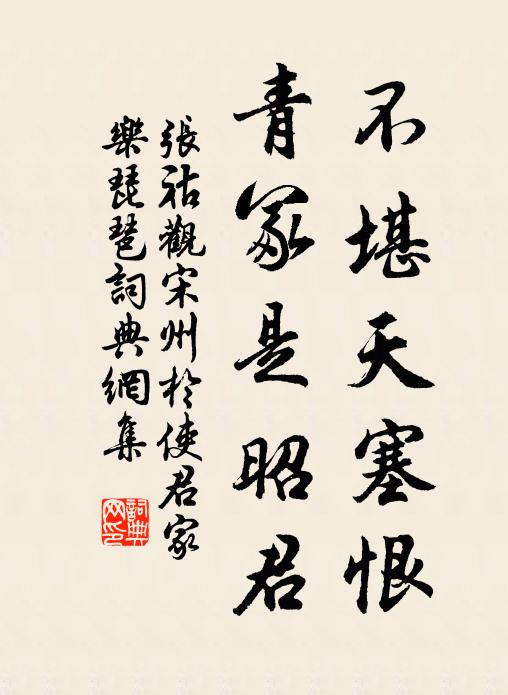 不堪天塞恨
青冢是昭君
張祜觀宋州於使君家
樂琵琶詞典網集
詞典
网印